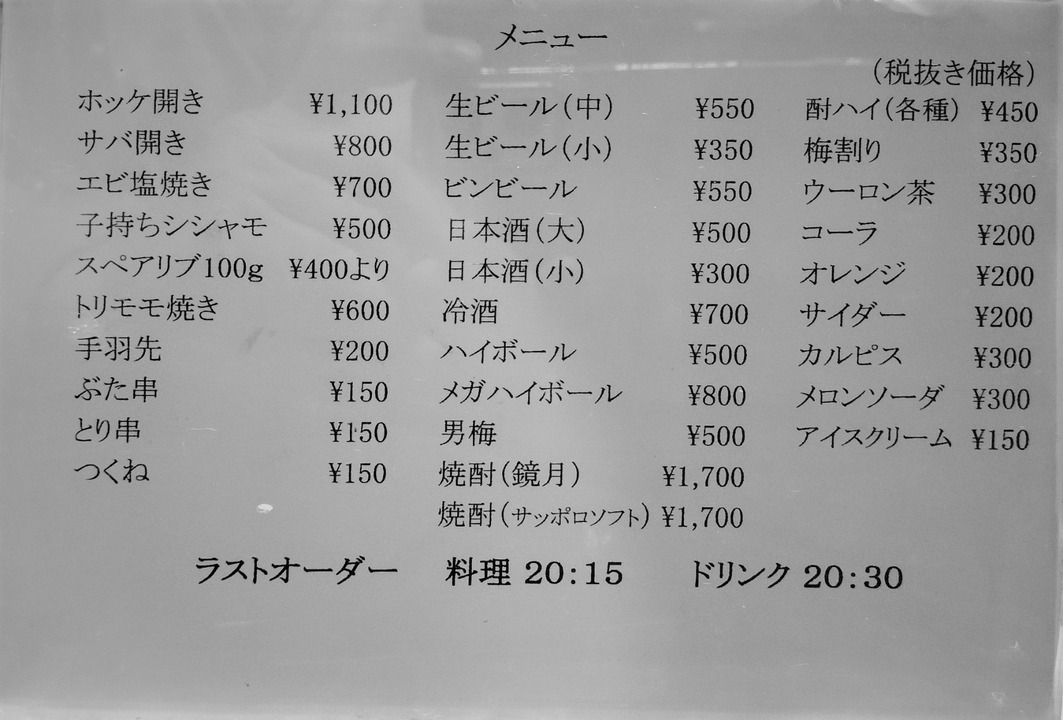 メニュー
(税抜き価格)
ホッケ開き ¥1,100
サバ開き ¥800
エビ塩焼き ¥700
子持ちシシャモ ¥500
スペアリブ100g ¥400より
トリモモ焼き ¥600
手羽先 ¥200
ぶた串 ¥150
とり串 ¥150
つくね ¥150
生ビール(中) ¥550
生ビール(小) ¥350
ビンビール ¥550
日本酒(大) ¥500
日本酒(小) ¥300
冷酒 ¥700
ハイボール ¥500
メガハイボール ¥800
男梅 ¥500
焼酎(鏡月) ¥1,700
焼酎(サッポロソフト) ¥1,700
酎ハイ(各種) ¥450
梅割り ¥350
ウーロン茶 ¥300
コーラ ¥200
オレンジ ¥200
サイダー ¥200
カルピス ¥300
メロンソーダ ¥300
アイスクリーム ¥150
ラストオーダー 料理 20:15 ドリンク 20:30